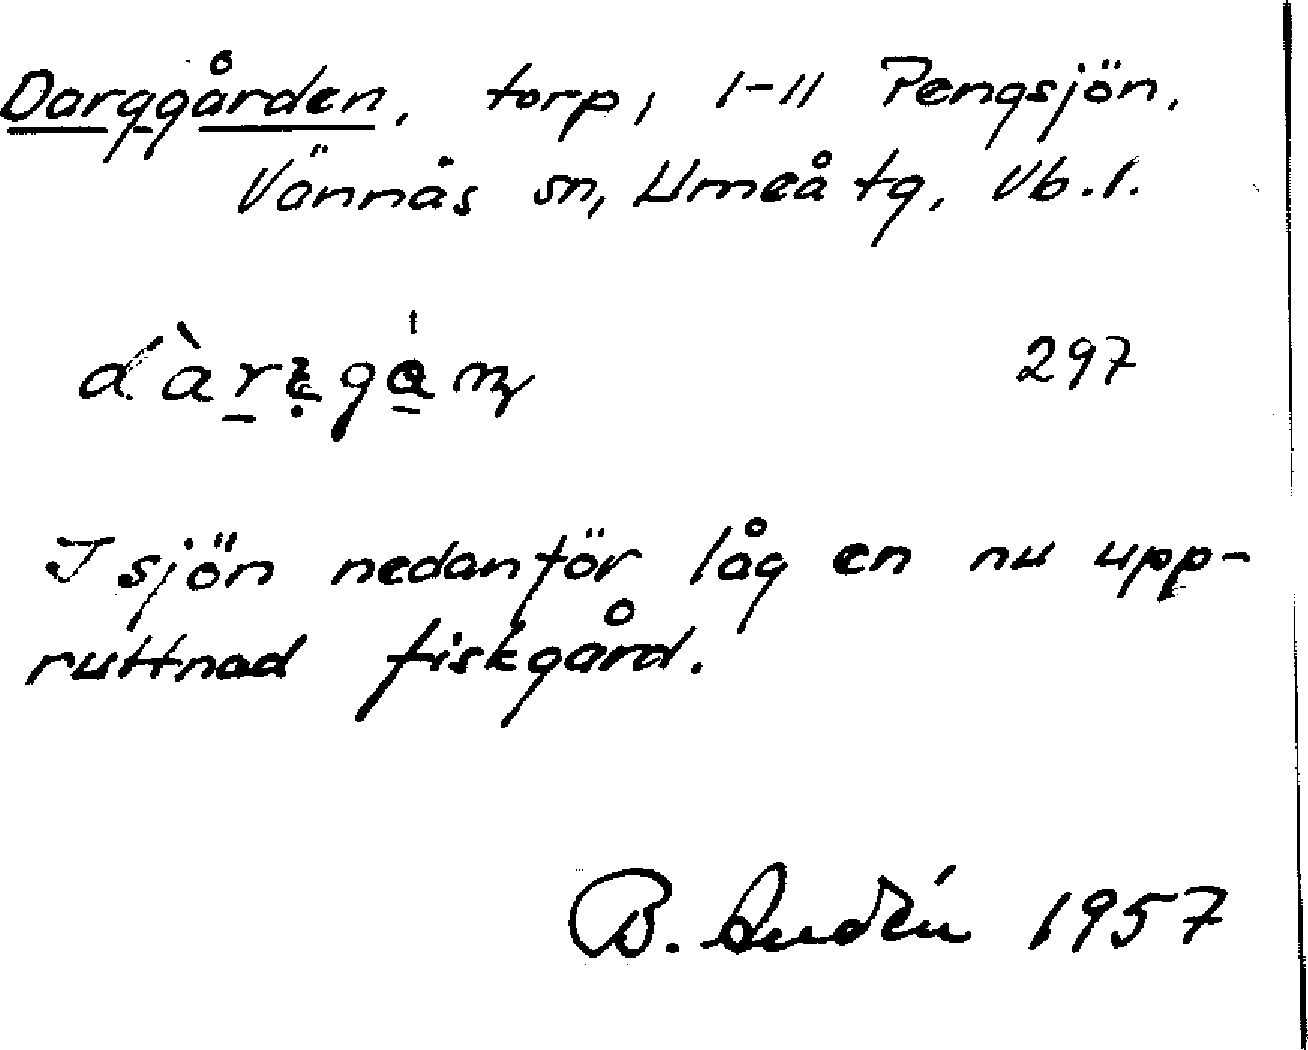 Darggården, torp, 1-11 Pengsjön,
Vännäs sn, Umeå tg, Vb. l.
297
I sjön nedanför låg en nu upp-
ruttnad fiskgård.
B. Audén 1957